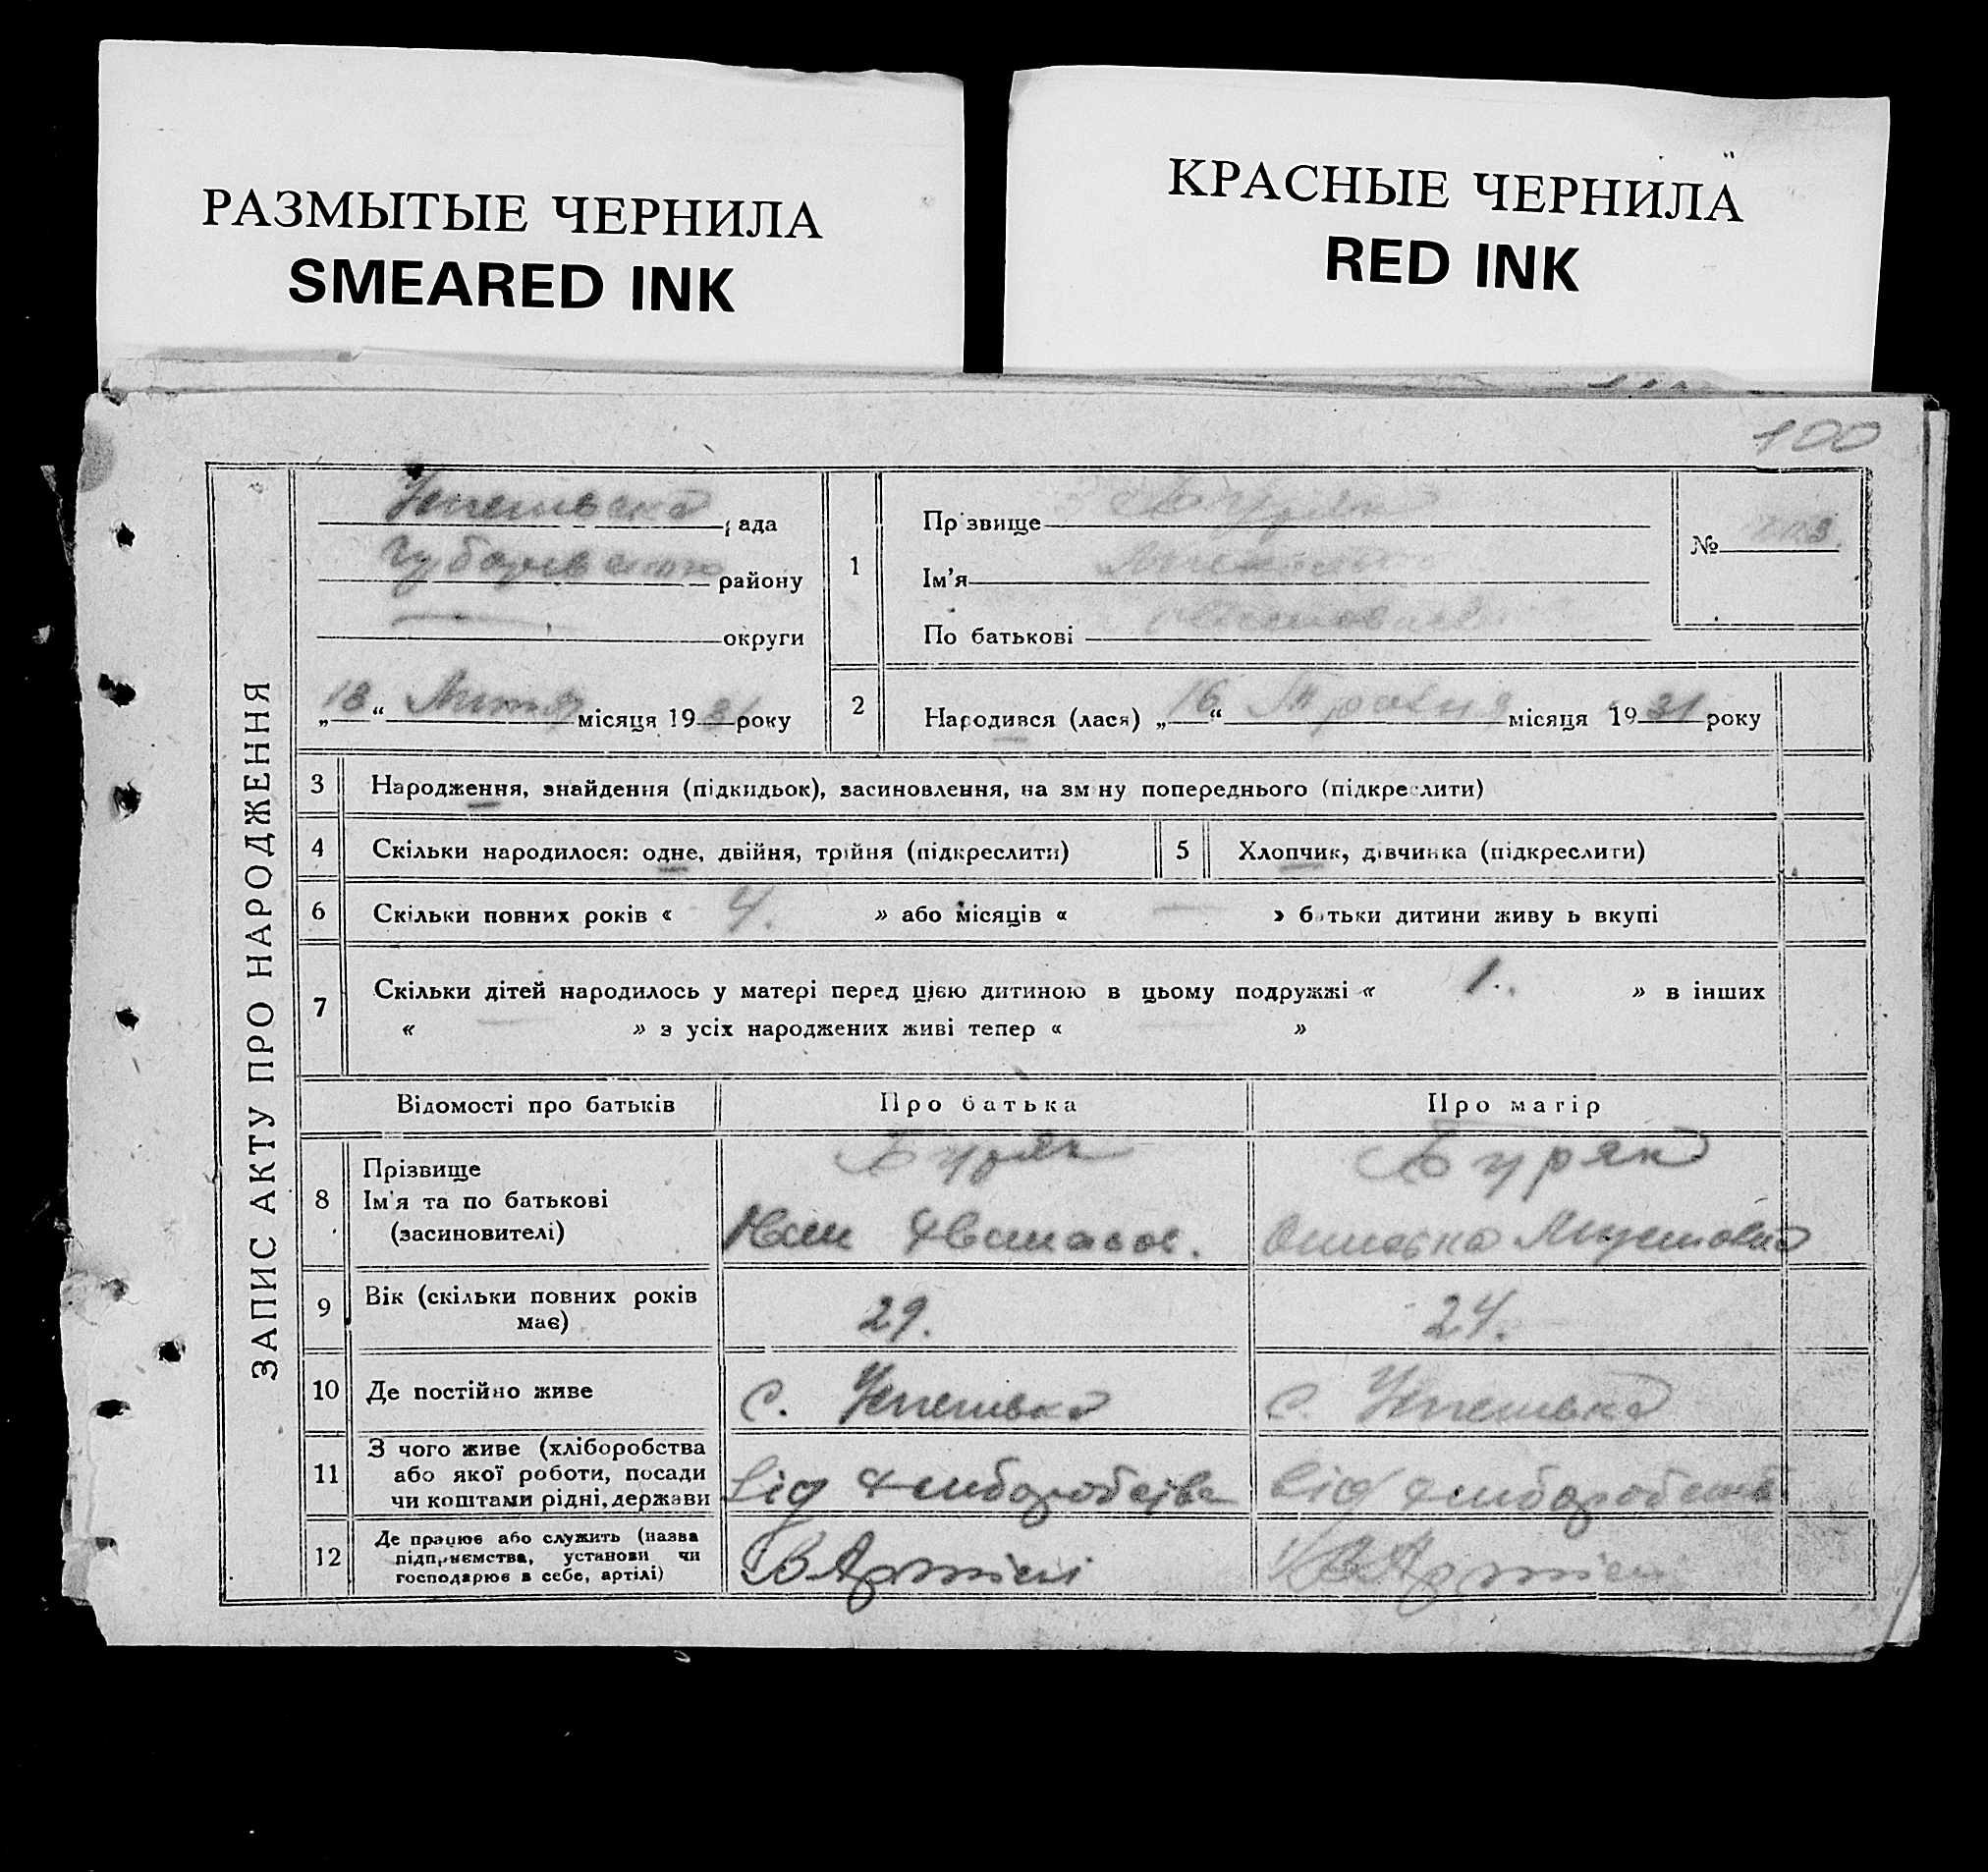 РАЗМЫТЫЕ ЧЕРНИЛА
SMEARED INK
КРАСНЫЕ ЧЕРНИЛА
RED INK
100
ЗАПИС АКТУ ПРО НАРОДЖЕННЯ
ада
району
округи
„18“ місяця 1931 року
1
Прізвище Буряк
Ім'я
По батькові
№
2
Народився (лася) „16“ Травня місяця 1931 року
3 Народження, знайдення (підкидьок), засиновлення, на зміну попереднього (підкреслити)
4 Скільки народилося: одне, двійня, трійня (підкреслити)
5 Хлопчик, дівчинка (підкреслити)
6 Скільки повних років « 4. » або місяців « — » батьки дитини живуть вкупі
7 Скільки дітей народилось у матері перед цією дитиною в цьому подружжі « 1. » в інших
« — » з усіх народжених живі тепер « — »
Відомості про батьків Про батька Про матір
8 Прізвище Буряк Буряк
Ім'я та по батькові
(засиновителі)
9 Вік (скільки повних років має) 29. 24.
10 Де постійно живе с. с.
11 З чого живе (хліборобства
або якої роботи, посади
чи коштами рідні, держави від від
12 Де працює або служить (назва
підприємства, установи чи
господарює в себе, артілі) В Артілі В Артілі